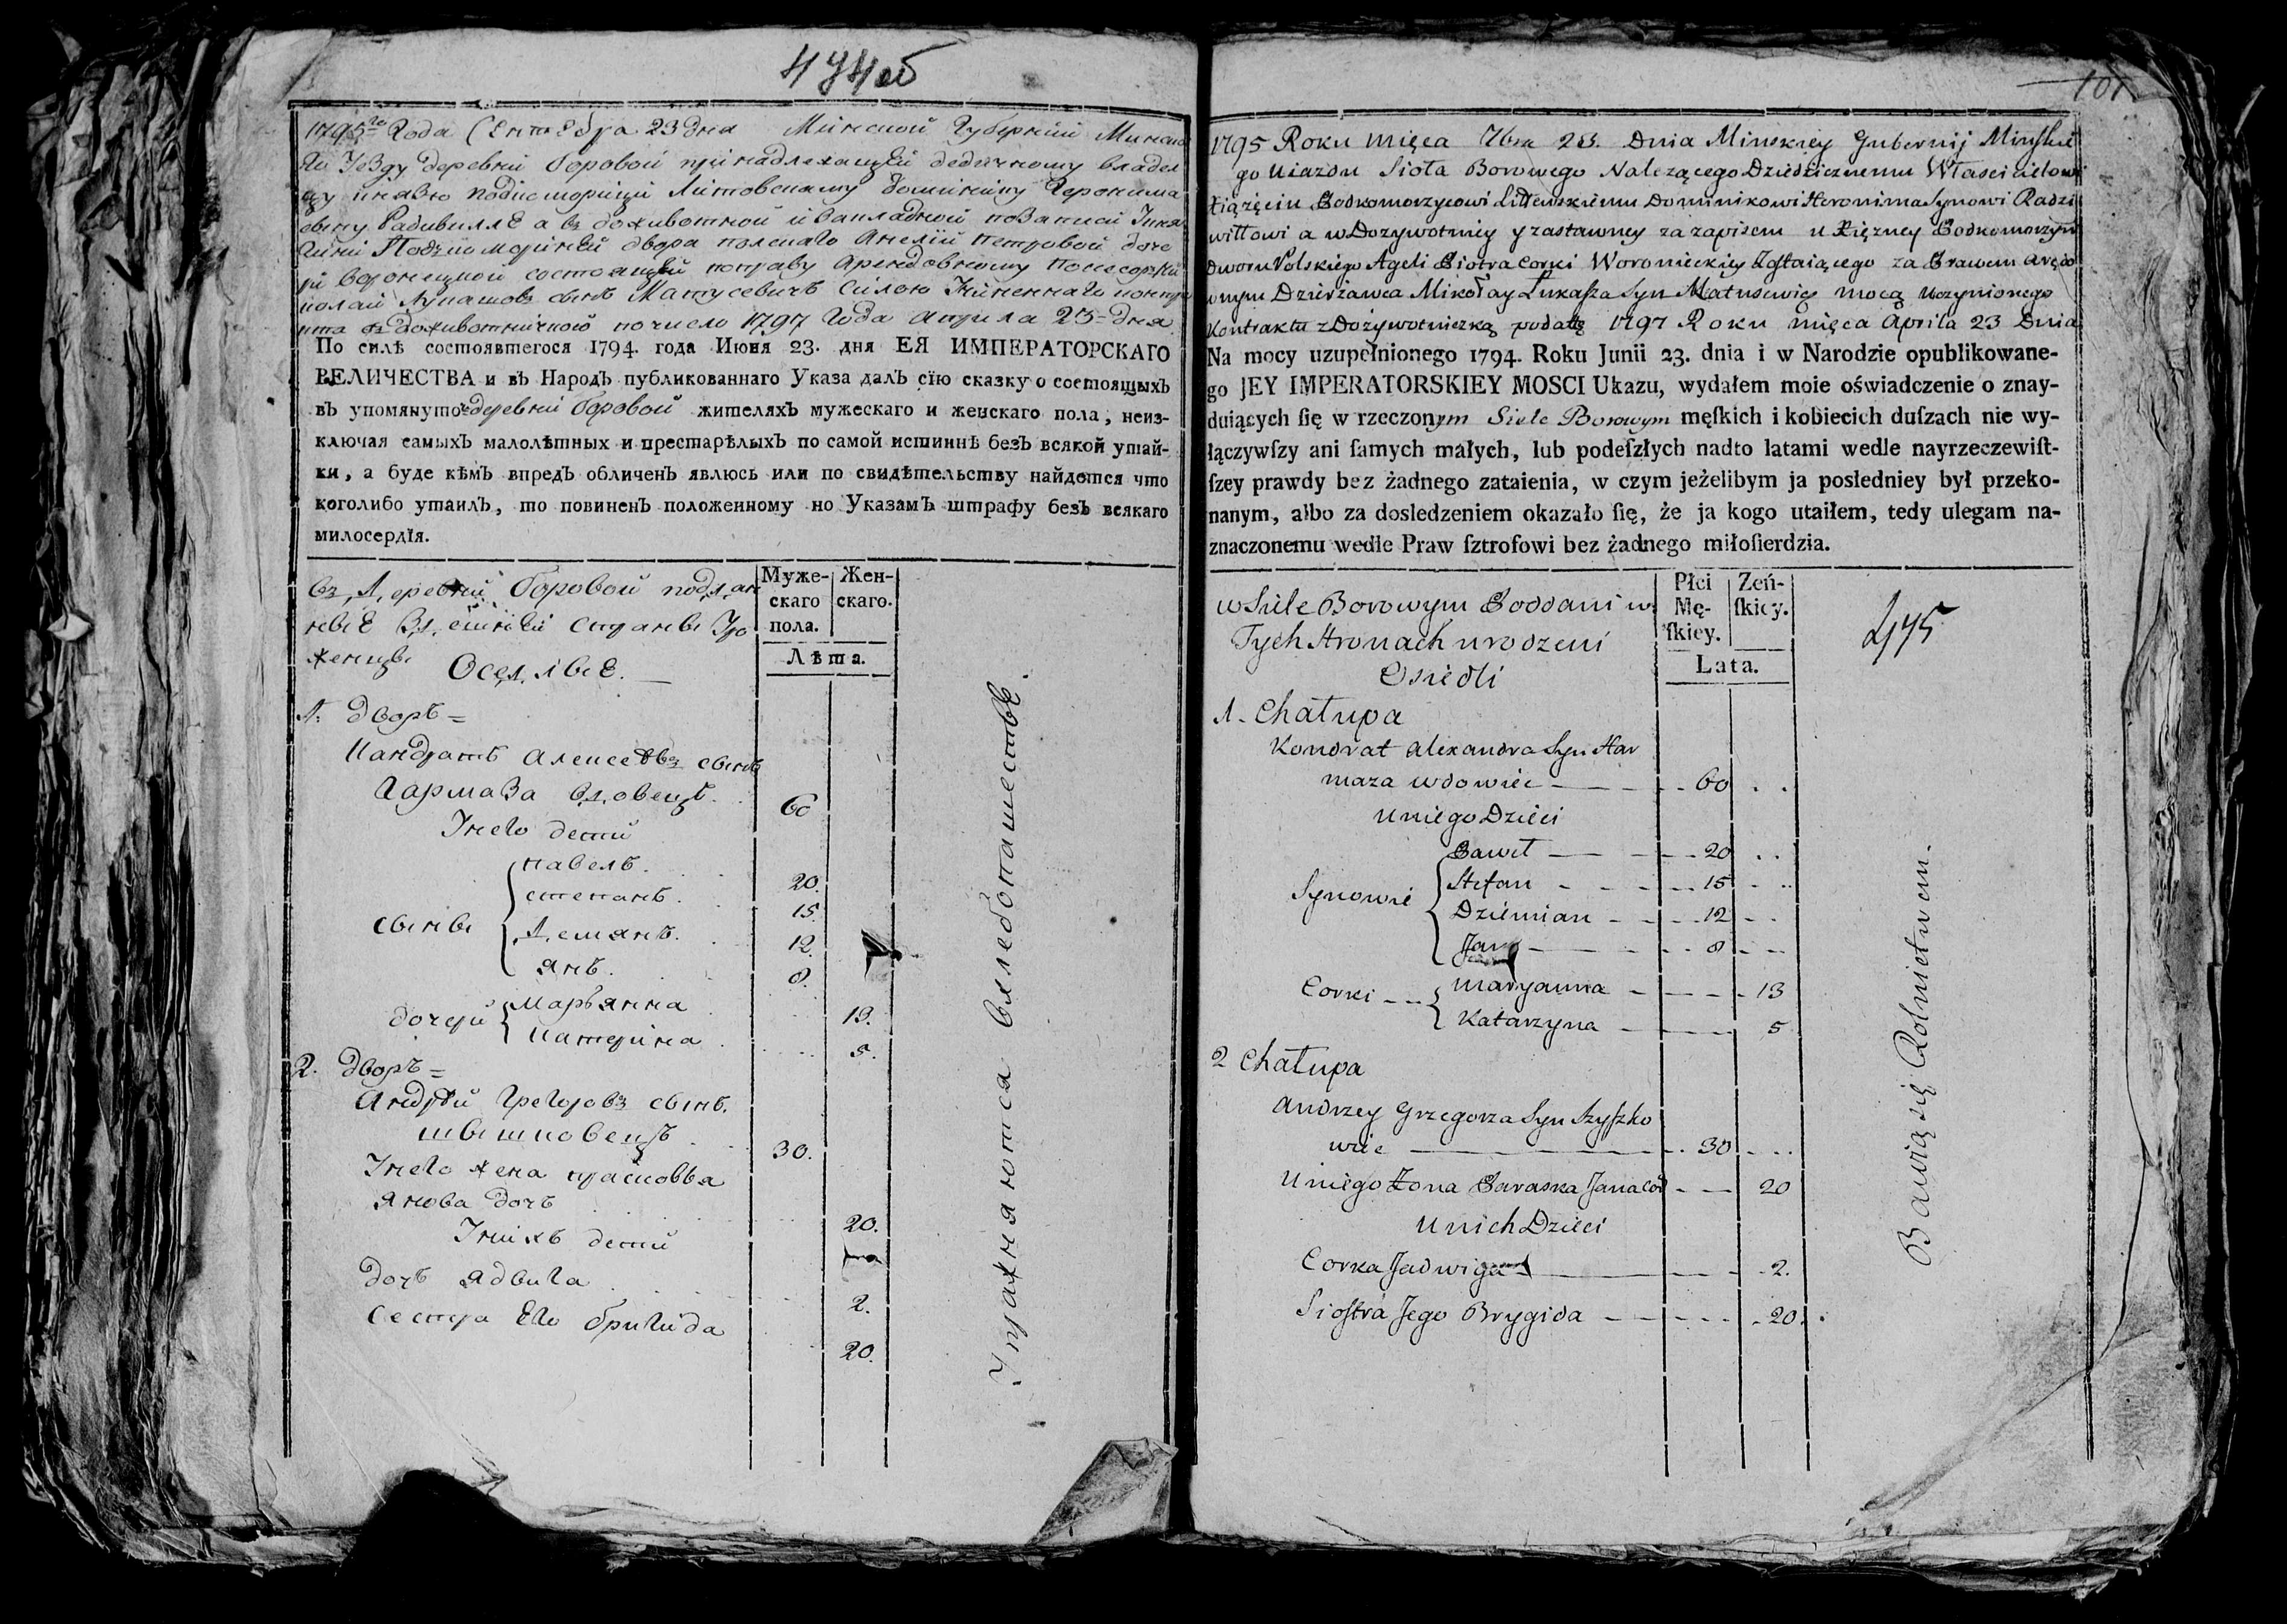 474об
1795го Года Сентебра 23 дня Минской Губернии Минска
го Уезду деревни Боровой принадлежащей дедичному владел
цу князю подкоморицу Литовскому Доминику Иеронима
сыну Радивилле а в доживотной и закладной по записи
двора полскаго Анелии Петровой доче
ри Воронецкой состоящей по праву арендовному
колай Лукашов сын Матусевич силою контра
кта з доживотничкою по число 1797 Года Априла 23 дня
По силѣ состоявшегося 1794. года Июня 23. дня ЕЯ ИМПЕРАТОРСКАГО
ВЕЛИЧЕСТВА и въ Народъ публикованнаго Указа далъ сїю сказку о состоящыхъ
въ упомянутой деревни Боровой жителяхъ мужескаго и женскаго пола, неиз-
ключая самыхъ малолѣтных и престарѣлыхъ по самой истиннѣ безъ всякой утай-
ки, а буде кѣмъ впредъ обличенъ явлюсь или по свидѣтельству найдется что
коголибо утаилъ, то повиненъ положенному но Указамъ штрафу безъ всякаго
милосердїя.
Муже- Жен-
скаго скаго.
пола.
Лѣта.
Въ Деревни Боровой поддан
ные здешней стороны уро
женцы
Оседлые.
1. дворъ =
Кандратъ Алексеевъ сынъ
Гармаза вдовецъ. 60
У него дети
сыны { павелъ. 20.
степанъ. 15.
Демянъ. 12.
янъ. 8.
дочери { Марьянна 13.
Катерина 5.
2. дворъ =
Андрей Грегоровъ сынъ.
шышковецъ 30.
У него жена прасковья
янова дочъ 20.
У нихъ дети
дочъ ядвига 2.
Сестра Его бригида 20.
Упражняются в хлебопашестве.
101
1795 Roku Mięca 7bra 23. Dnia Minskiey Gubernij Minſkie
go Uiazdu Siola Borowego Nalezącego Dziedzicznemu Właścicielowi
Xiązęciu Podkomorzycowi Littewskiemu Dominikowi Heronima Synowi Radzi
wiłłowi a w Dozywotniey y zastawney za zapisem u Xięzney Podkomorzyn
Dworu Polskiego Ageli Piotra Corki Woronieckiey Zoſtaiącego za Prawem arędo
wnym Dzierżawca Mikołay Łukaſza Syn Matusewicz mocą uczynionego
Kontraktu z Dożywotniczką podatę 1797 Roku mięca Aprila 23 Dnia
Na mocy uzupełnionego 1794. Roku Junii 23. dnia i w Narodzie opublikowane-
go JEY IMPERATORSKIEY MOSCI Ukazu, wydałem moie oświadczenie o znay-
duiących ſię w rzeczonym Siele Borowym męſkich i kobiecich duſzach nie wy-
łączywſzy ani ſamych małych, lub podeſzłych nadto latami wedle nayrzeczewiſt-
ſzey prawdy bez żadnego zataienia, w czym jeżelibym ja posłedniey był przeko-
nanym, albo za dosledzeniem okazało ſię, że ja kogo utaiłem, tedy ulegam na-
znaczonemu wedle Praw ſztrofowi bez żadnego miłoſierdzia.
Płci Zeń-
Mę- ſkiey.
ſkiey.
Lata.
495
w Siele Borowym Poddani w
Tych Stronach urodzeni
Osiedli
1. Chałupa
Kondrat Alexandra Syn Har
maza wdowiec 60
U niego Dzieci
Synowie { Paweł 20
Stefan 15
Dziemian 12
Jan 8
Corki { Maryanna 13
Katarzyna 5
2 Chałupa
Andrzey Grzegorza Syn Szyſzko
wiec 30
U niego Zona Paraska Jana cor 20
U nich Dzieci
Corka Jadwiga 2.
Sioſtra Jego Brygida 20.
Bawią się Rolnictwem.